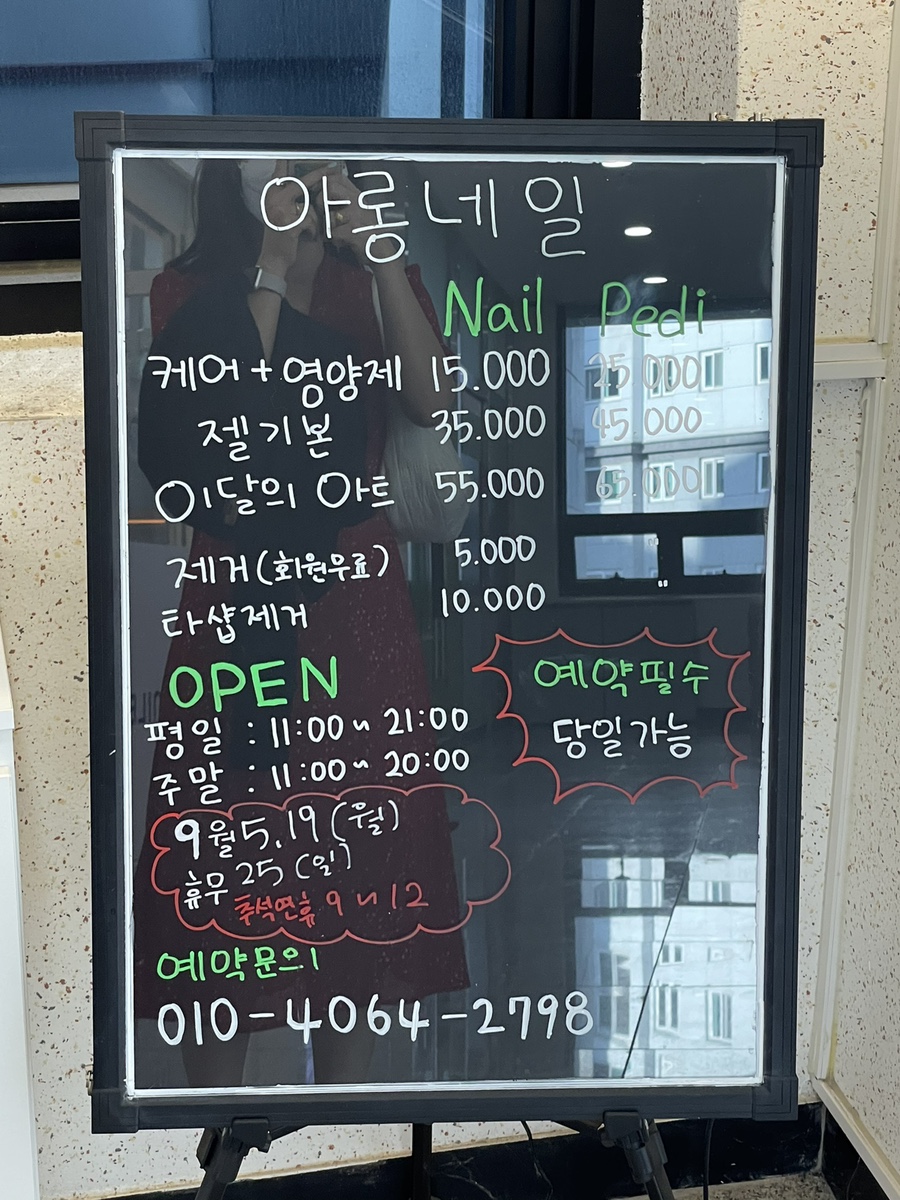 아롱네일
Nail Pedi
케어+영양제 15.000 25.000
젤기본 35.000 45.000
이달의 아트 55.000 65.000
제거(회원무료) 5.000 "
타샵제거 10.000 "
OPEN
평일 : 11:00~ 21:00
주말 : 11:00~ 20:00
예약필수
당일가능
9월 5.19 (월)
휴무 25 (일)
추석연휴 9~12
예약문의
010-4064-2798